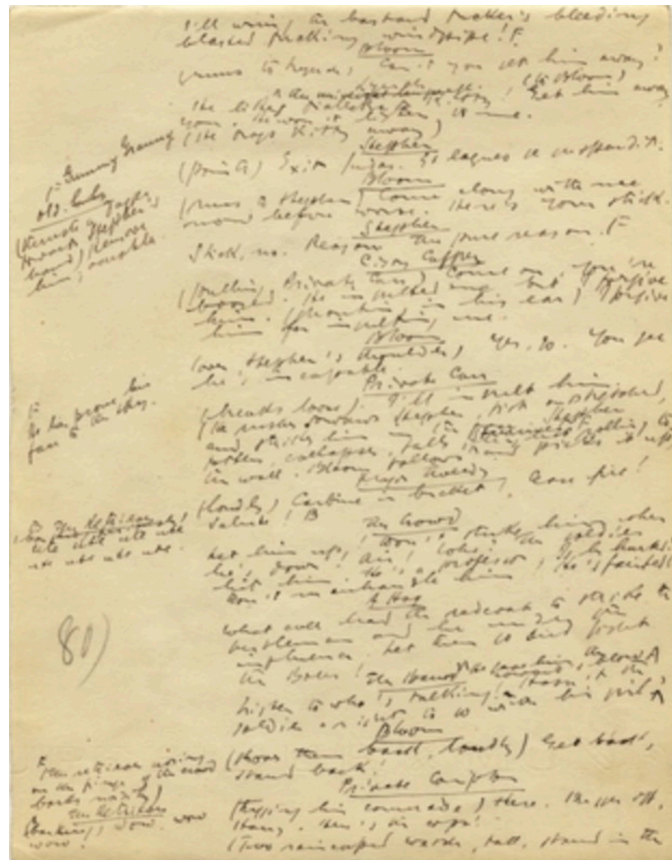 I'll wring the bastard fucker's bleeding
blasted fucking windpipe! F
Bloom
(runs to Lynch) Can't you get him away?
He likes dialectic, the universal language. Kitty! (to Bloom) Get him away
you. He won't listen to me.
(He drags Kitty away)
Stephen
(points) Exit Judas. Et laqueo se suspendit.
Bloom
(runs to Stephen) Come along with me
now before worse. Here's your stick.
Stephen
Stick, no. Reason. This feast of pure reason. F
Cissy Caffrey
(pulling Private Carr) Come on, you're
boosed. He insulted me but I forgive
him. (shouting in his ear) I forgive
him for insulting me.
Bloom
(over Stephen's shoulder) Yes, go. You see
he's incapable.
Private Carr
(breaks loose) I'll insult him.
(He rushes towards Stephen, fist outstretched,
and strikes him in the face. Stephen
totters, collapses, falls
the wall. Bloom follows and picks it up)
Major Tweedy
(loudly) Carbine in bucket! Cease fire!
Salute! B
The Crowd
Let him up! Don't strike him when
he's down! Air! Who? The soldier
hit him. He's a professor. Is he hurted?
Don't manhandle him! He's fainted!
A Hag
What call had the redcoat to strike the
gentleman and he under the
influence. Let them go and fight
the Boers!
The Bawd
Listen to who's talking! Hasn't the
soldier a right to go with his girl?
Bloom
(shoves them back, loudly) Get back,
stand back!
Private Compton
(tugging his comrade) Here. Bugger off,
Harry. Here's the cops!
(Two raincaped watch, tall, stand in the
F Gummy Granny
old
(thrusts a dagger
towards Stephen's
hand) Remove
him, acushla.
F
He lies prone, his
face to the sky.
The Retriever
(barking furiously)
ute ute ute
ute ute ute.
80)
F
The retriever nosing
on the fringe of the crowd
barks noisily)
The Retriever
(barking) Wow wow
wow!